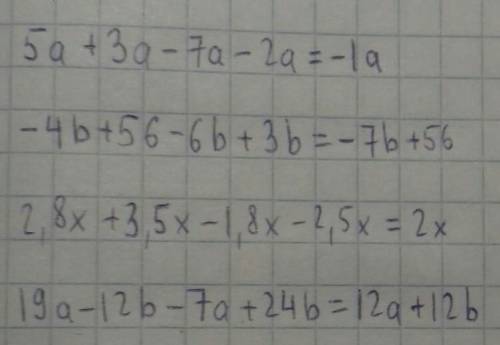 5a + 3a - 7a - 2a = -1a
-4b + 56 - 6b + 3b = -7b + 56
2,8x + 3,5x - 1,8x - 2,5x = 2x
19a - 12b - 7a + 24b = 12a + 12b